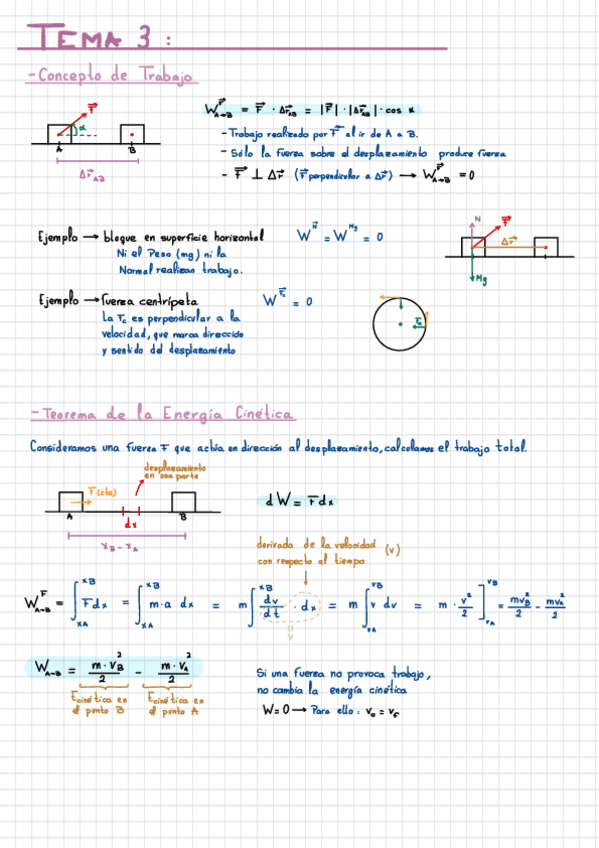 TEMA 3:
-Concepto de Trabajo
F⃗
α
A
B
Δr⃗AB
W^F⃗ A→B = F⃗ · Δr⃗AB = |F⃗| · |Δr⃗AB| · cos α
- Trabajo realizado por F⃗ al ir de A a B.
- Sólo la fuerza sobre el desplazamiento produce fuerza
- F⃗ ⊥ Δr⃗ (F⃗ perpendicular a Δr⃗) → W^F⃗ A→B = 0
Ejemplo → bloque en superficie horizontal
Ni el Peso (mg) ni la
Normal realizan trabajo.
W^N⃗ = W^Mg = 0
N
F⃗
Δr⃗
Mg
Ejemplo → fuerza centrípeta
La Fc es perpendicular a la
velocidad, que marca dirección
y sentido del desplazamiento
W^F⃗c = 0
F⃗c
-Teorema de la Energía Cinética
Consideramos una fuerza F que actúa en dirección al desplazamiento, calculamos el trabajo total.
desplazamiento
en una parte
F(cte)
A
dx
B
xB - xA
dW = F⃗dx
derivada de la velocidad (v)
con respecto al tiempo
W^F⃗ A→B = ∫xA^xB F⃗dx = ∫xA^xB m·a dx = m∫xA^xB dv/dt · dx = m∫vA^vB v dv = m · v²/2 ]vA^vB = mvB²/2 - mvA²/2
v
W A→B = m·vB²/2 - m·vA²/2
Ecinética en
el punto B
Ecinética en
el punto A
Si una fuerza no provoca trabajo,
no cambia la energía cinética
W=0 → Para ello: v₀ = vF